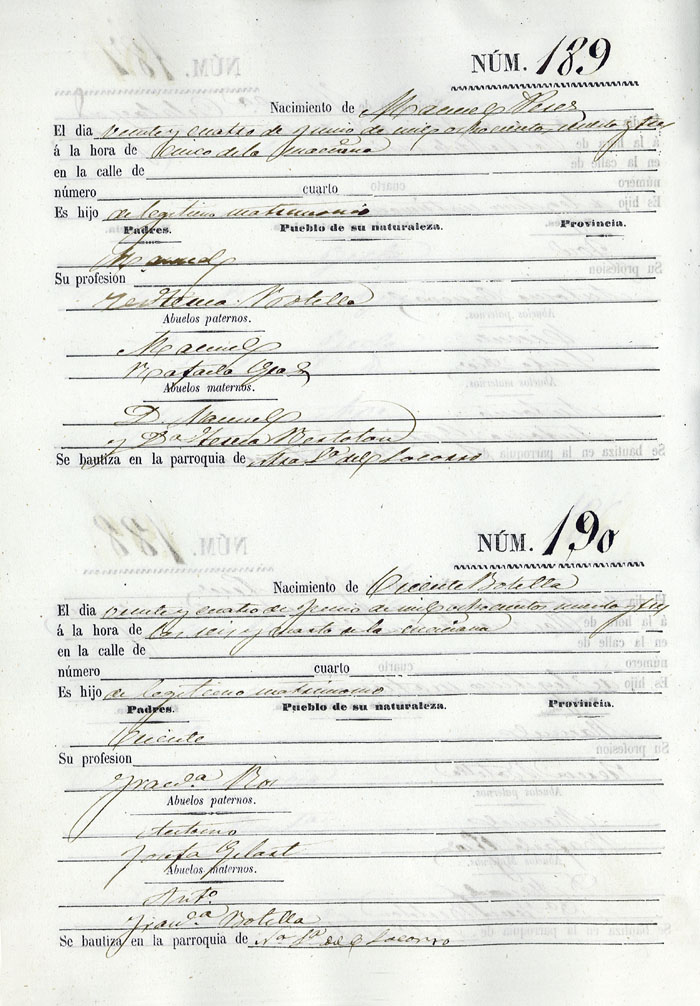 NÚM. 189
Nacimiento de Manuel Perez
El dia veinte y cuatro de Junio de mil ochocientos y tres
á la hora de cinco de la mañana
en la calle de
número cuarto
Es hijo de legitimo matrimonio
Padres. Pueblo de su naturaleza. Provincia.
Manuel
Su profesion
Botella
Abuelos paternos.
Manuel
Rafaela
Abuelos maternos.
D. Manuel
y Dª Teresa
Se bautiza en la parroquia de Ntra Sª del Socorro
NÚM. 190
Nacimiento de Vicente Botella
El dia veinte y cuatro de Junio de mil ochocientos y tres
á la hora de las seis y cuarto de la mañana
en la calle de
número cuarto
Es hijo de legitimo matrimonio
Padres. Pueblo de su naturaleza. Provincia.
Vicente
Su profesion
Francª
Abuelos paternos.
Antonio
Josefa
Abuelos maternos.
Antº
Francª Botella
Se bautiza en la parroquia de Nª Sª del Socorro